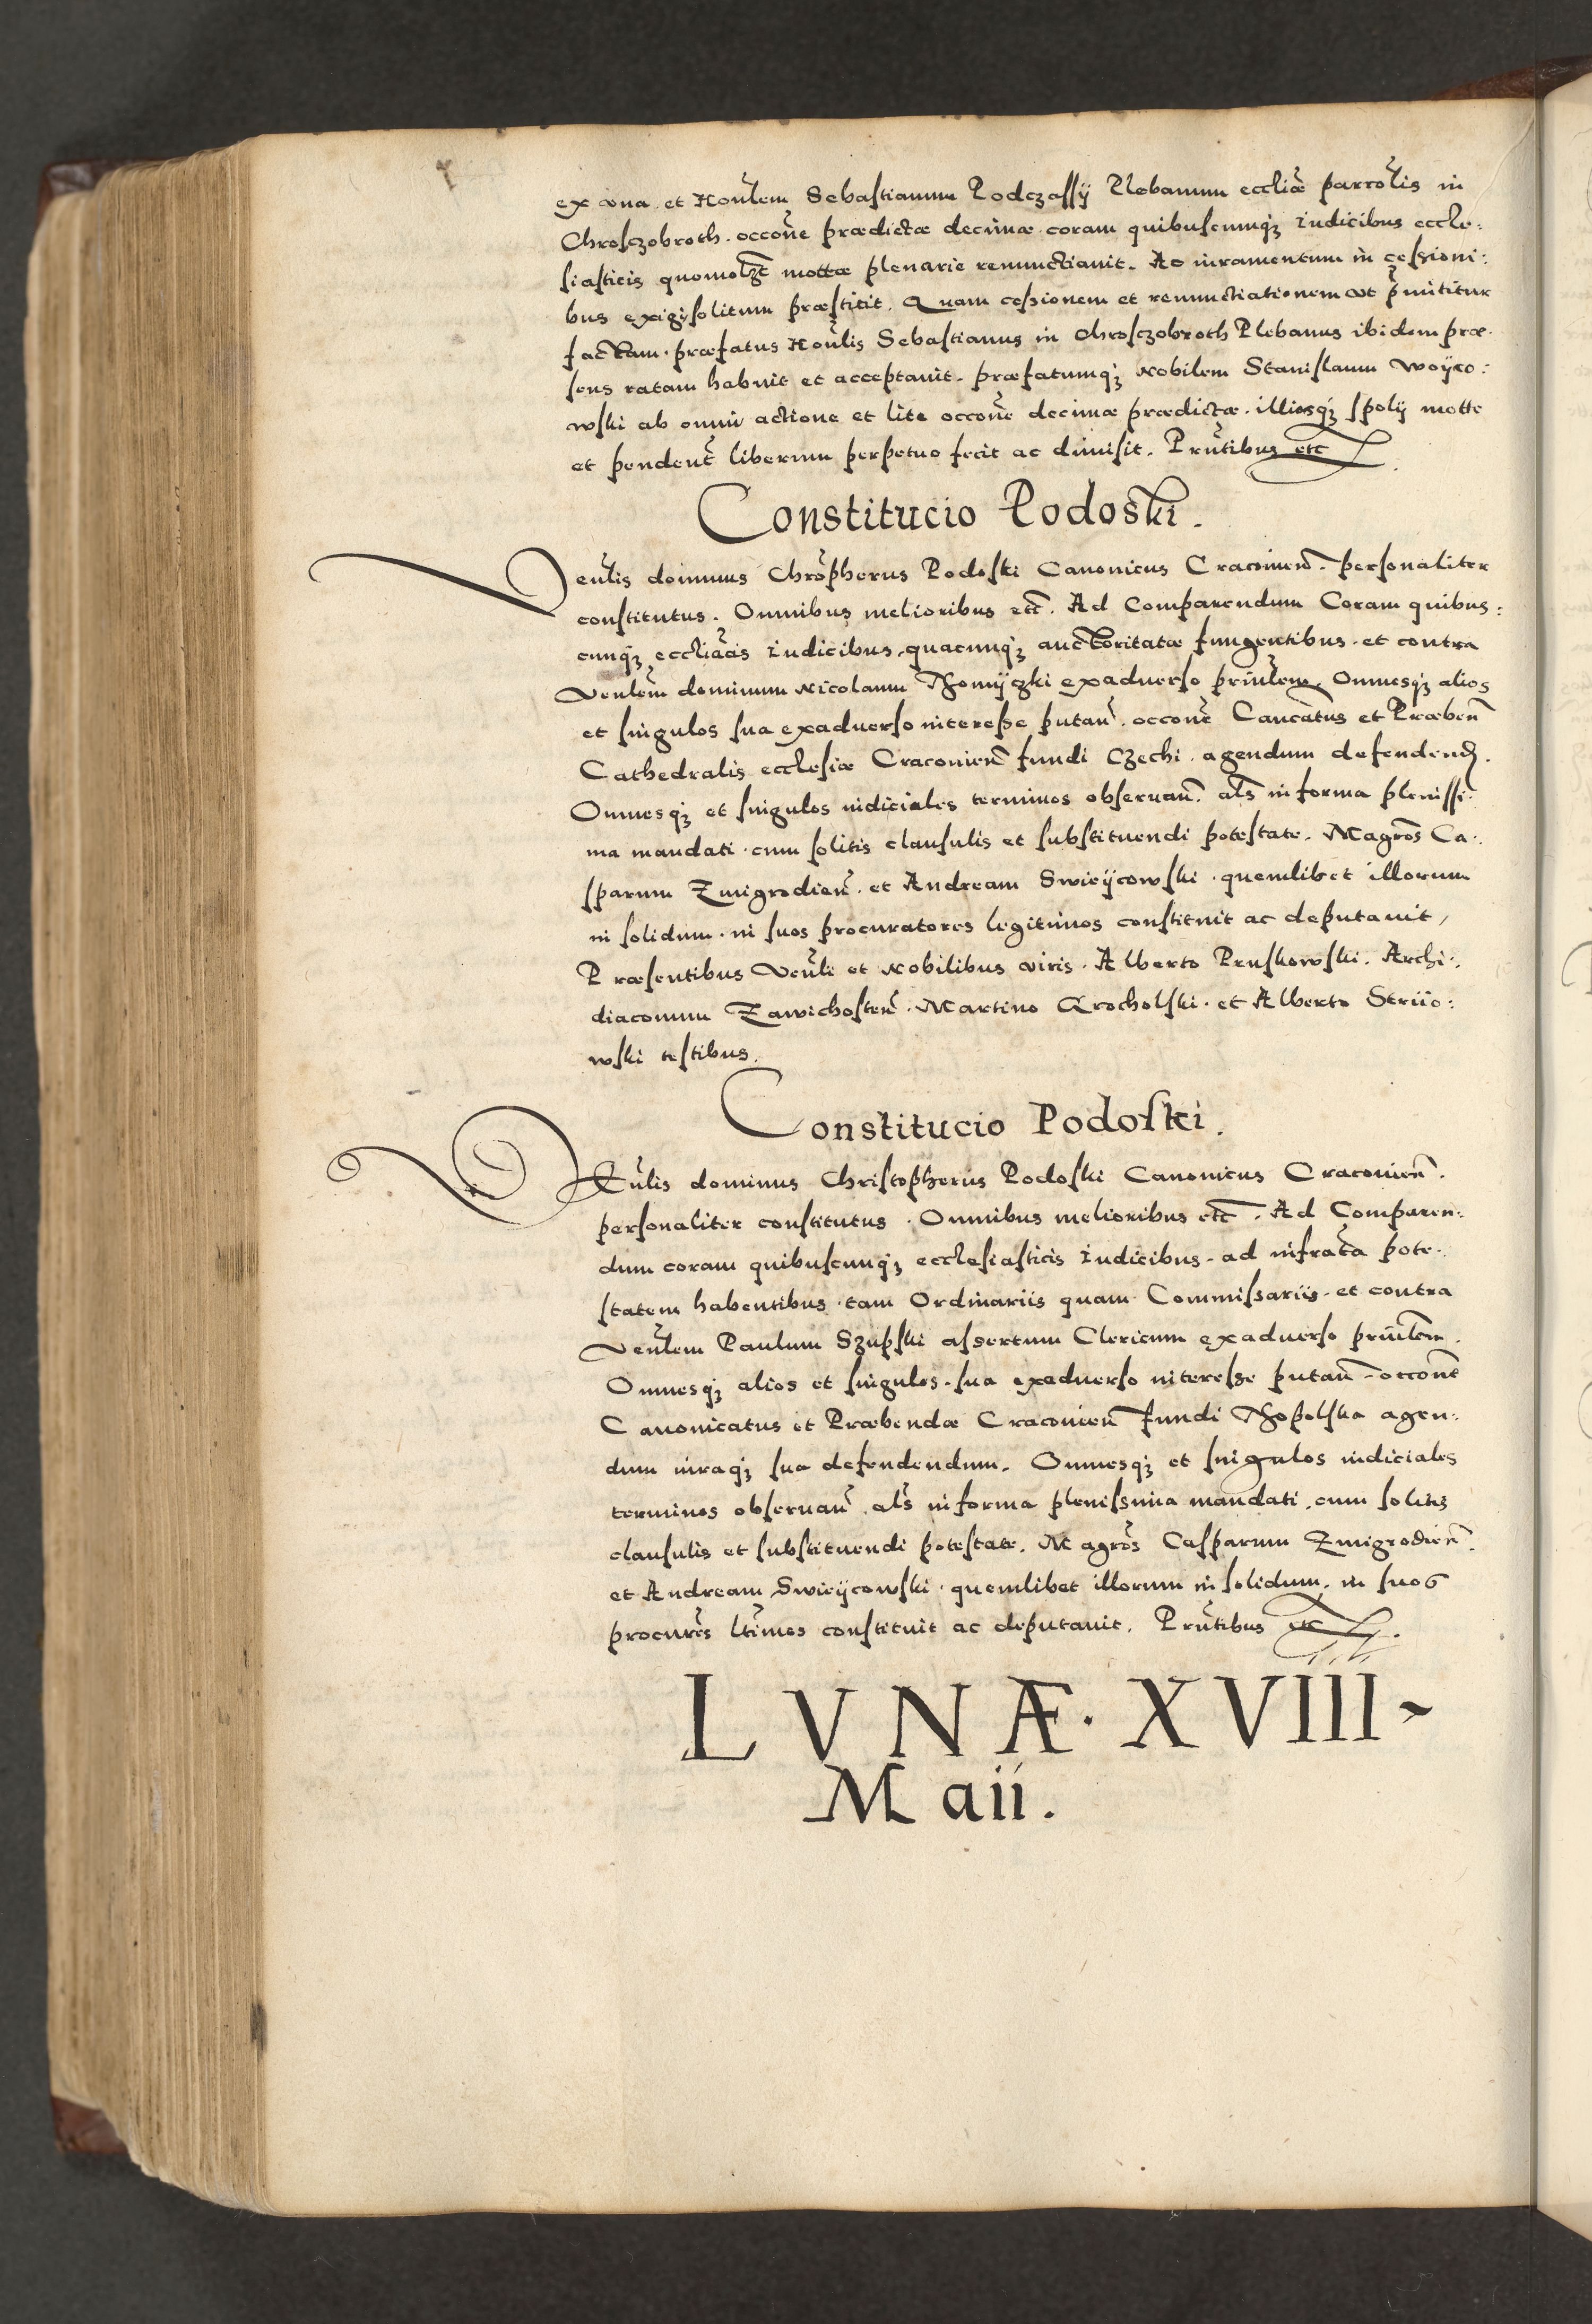 ex vna et Honlem Sebastianum Podczassÿ Plebanum eccliæ parrolis in
Chrosczobroth. occone prædictæ decimæ coram quibuscunq iudicibus eccle:
siasticis quomolzt mottæ plenarie renunctiauit. Ac iuramentum in cessioni:
bus exigÿ solitum præstitit. Quam cessionem et renunctiationem vt pmititur
factam. præfatus Honlis Sebastianus in Chrosczobroth Plebanus ibidem præ.
sens ratam habuit et acceptauit. præfatumq Nobilem Stanislaum Woÿco:
wski ab omni actione et lite occone decimæ prædictæ. illiusq spolÿ motte
et pendent liberum perpetuo fecit ac dimisit. Prntibus etc
Constitucio Podoski.
Venlis dominus Chropherus Podoski Canonicus Cracouien. personaliter
constitutus. Omnibus melioribus etc. Ad Comparendum Coram quibus:
cunq eccliacis iudicibus, quacunq auctoritatæ fungentibus. et contra
Venlem dominum Nicolaum Thomÿczki exaduerso prinlem. Omnesq alios
et singulos sua exaduerso interesse putan. occone Cancatus et Præben
Cathedralis ecclesiæ Cracouien fundi Czechi. agendum defendend.
Omnesq et singulos iudiciales terminos obseruan. als in forma plenissi:
ma mandati. cum solitis clausulis et substituendi potestate. Magros Ca:
sparum Zmigrodien. et Andream Swieÿcowski. quemlibet illorum
in solidum. in suos procuratores legitimos constituit ac deputauit,
Præsentibus Venli et Nobilibus viris. Alberto Pruskowski. Archi:
diaconum Zawichosten. Martino Grocholski. et Alberto Strÿo:
wski testibus.
Constitucio Podoski.
VEnlis dominus Christopherus Podoski Canonicus Cracouien.
personaliter constitutus. Omnibus melioribus etc. Ad Comparen:
dum coram quibuscunq ecclesiasticis iudicibus. ad infracta pote:
statem habentibus. tam Ordinariis quam Commissariis. et contra
Venlem Paulum Szupski assertum Clericum exaduerso prinlem.
Omnesq alios et singulos. sua exaduerso interesse putan. occone
Canonicatus et Præbendæ Cracouien fundi Thopolska agen:
dum iuraq sua defendendum. Omnesq et singulos iudiciales
terminos obseruan. als in forma plenissima mandati. cum solitis
clausulis et substituendi potestate. Magros Casparum Zmigrodien.
et Andream Swieÿcowski. quemlibet illorum in solidum. in suos
procures ltimos constituit ac deputauit. Prntibus etc.
LVNÆ. XVIII
Maii.